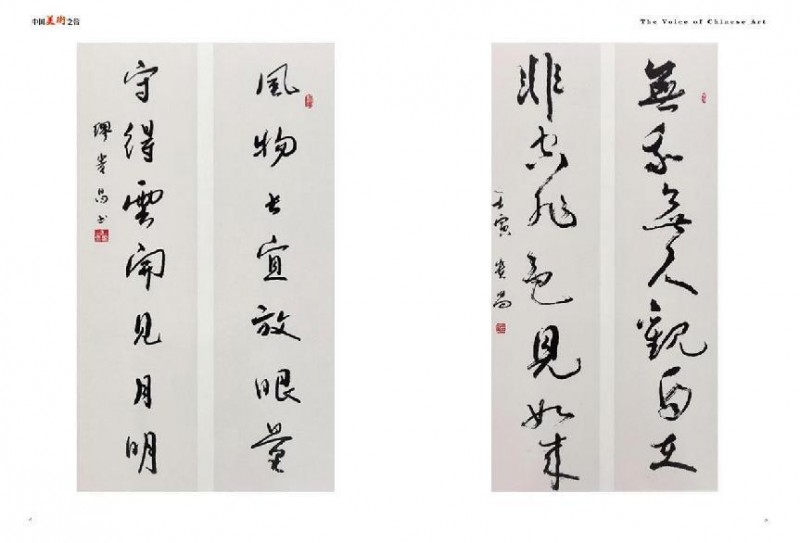 中国美術之音
The Voice of Chinese Art
風物长宜放眼量
守得雲開見月明
缪贵昌书
無我無人觀自在
非空非色見如来
壬寅 贵昌